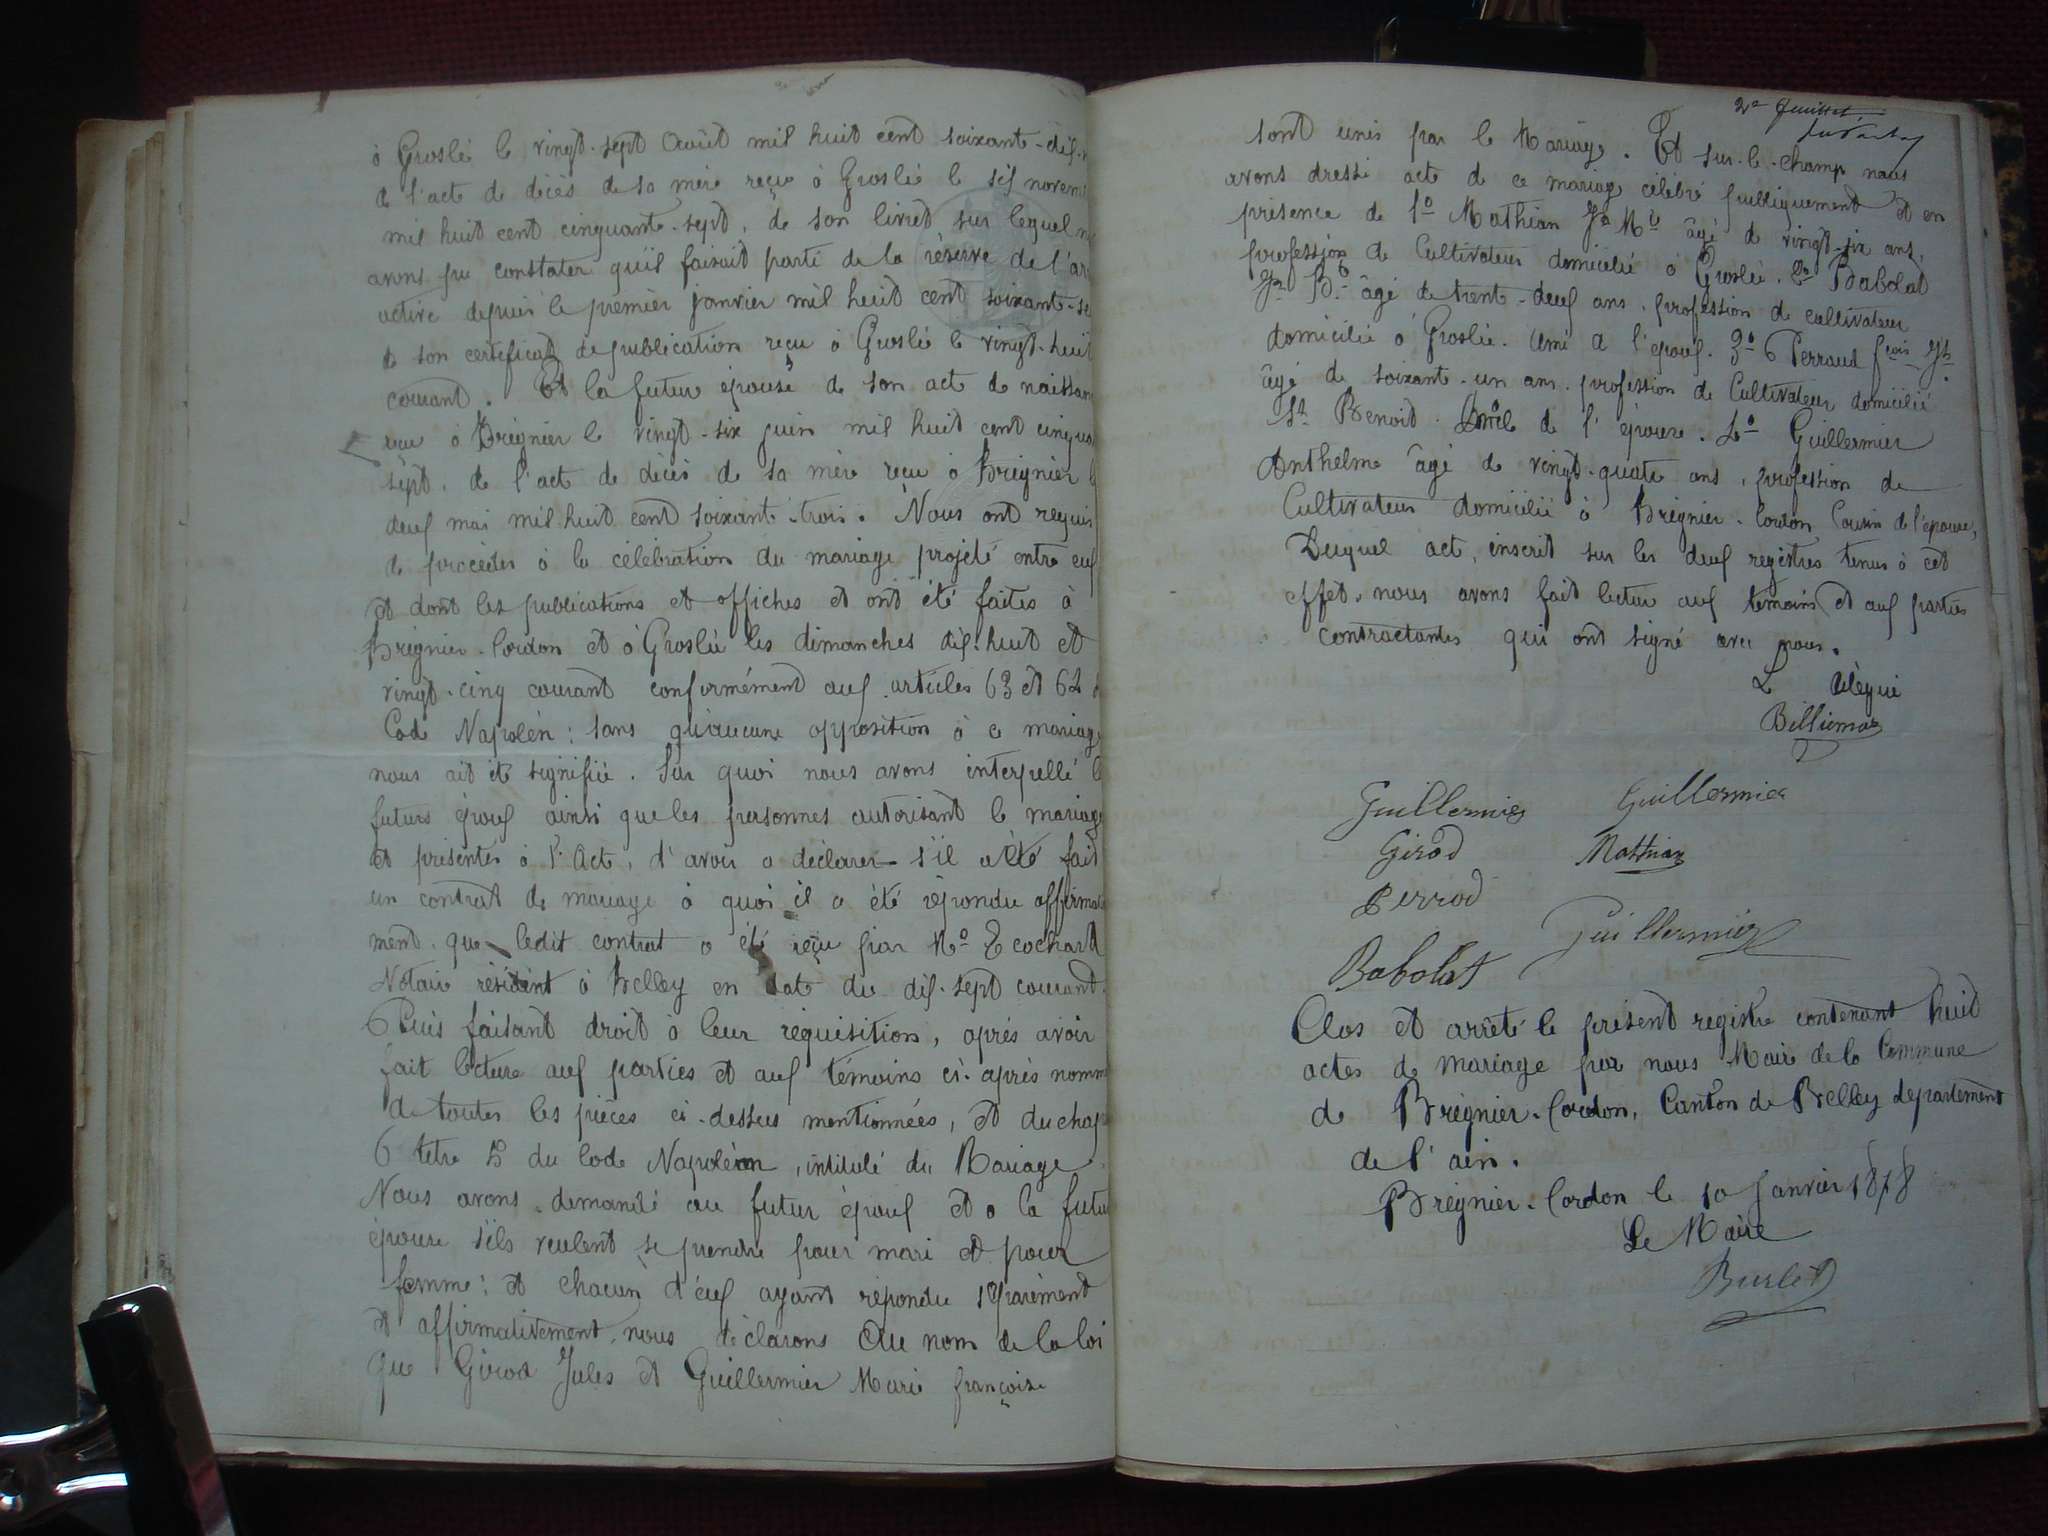 à Groslée le vingt-sept Août mil huit cent soixante-dix-
de l'acte de décès de sa mère reçu à Groslée le six novem
mil huit cent cinquante-sept, de son livret sur lequel n
avons pu constater qu'il faisait parti de la réserve de l'ar
active depuis le premier janvier mil huit cent soixante-se
de son certificat de publication reçu à Groslée le vingt-huit
courant. Et la futur épouse de son acte de naissan
reçu à Brégnier le vingt-six juin mil huit cent cinqua
sept, de l'acte de décès de sa mère reçu à Brégnier l
deux mai mil huit cent soixante-trois. Nous ont requis
de procéder à la célébration du mariage projeté entre eux
et dont les publications et affiches et ont été faites à
Brégnier-Cordon et à Groslée les dimanches dix-huit et
vingt-cinq courant conformément aux articles 63 et 64 d
Code Napoléon : sans qu'aucune opposition à ce mariage
nous ait été signifiée. Sur quoi nous avons interpellé l
futurs époux ainsi que les personnes autorisant le mariage
et présentes à l'Acte, d'avoir a déclarer s'il a été fait
un contrat de mariage à quoi il a été répondu affirmati
ment que ledit contrat a été reçu par Me Trochard
Notaire résidant à Belley en date du dix-sept courant.
Puis faisant droit à leur réquisition, après avoir
fait lecture aux parties et aux témoins ci-après nomm
de toutes les pièces ci-dessus mentionnées, et du chap
6 titre 5 du Code Napoléon, intitulé du Mariage
Nous avons demandé au futur époux et à la futu
épouse s'ils veulent se prendre pour mari et pour
femme : et chacun d'eux ayant répondu séparément
et affirmativement, nous déclarons Au nom de la loi
que Girod Jules et Guillermier Marie françoise
2e feuillet
sont unis par le Mariage. Et sur-le-champ nous
avons dressé acte de ce mariage célébré publiquement et en
présence de 1o Mathian Jh Me âgé de vingt-six ans,
profession de Cultivateur domicilié à Groslée. 2o Babolat
Jh Bte âgé de trente-deux ans, profession de cultivateur
domicilié à Groslée. Ami de l'époux. 3o Perraud fçois Jh
âgé de soixante-un ans profession de Cultivateur domicilié
St Benoit. Oncle de l'épouse. 4o Guillermier
Anthelme âgé de vingt-quatre ans, profession de
Cultivateur domicilié à Brégnier-Cordon Cousin de l'épouse,
Duquel acte, inscrit sur les deux registres tenus à cet
effet, nous avons fait lecture aux témoins et aux parties
contractantes qui ont signé avec nous.
L Délégué
Billiemaz
Guillermier Guillermier
Girod Mathian
Perrod
Guillermier
Babolat
Clos et arrêté le présent registre contenant huit
actes de mariage par nous Maire de la Commune
de Brégnier-Cordon, Canton de Belley département
de l'ain.
Brégnier-Cordon le 10 Janvier 1878
Le Maire
Burlet